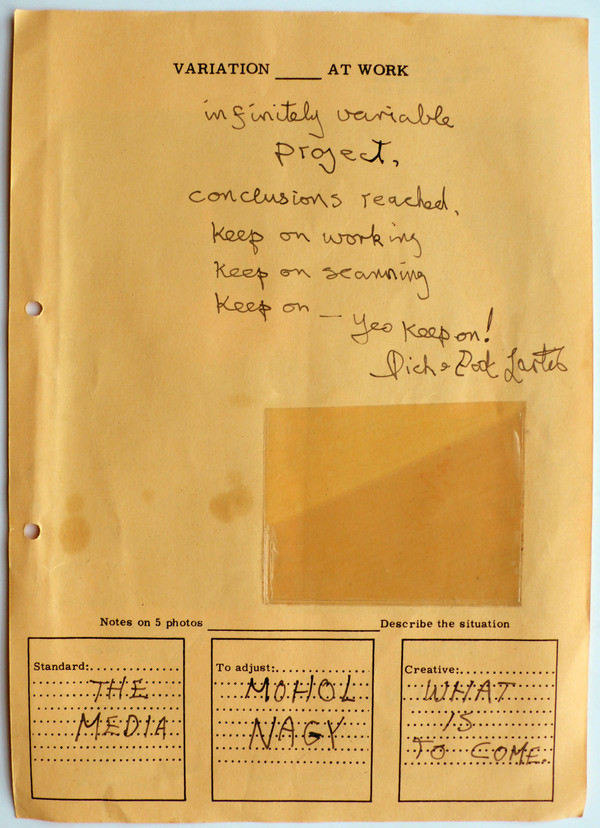 VARIATION _____ AT WORK
infinitely variable
project,
conclusions reached,
keep on working
keep on scanning
keep on — yes keep on!
Notes on 5 photos ____________________ Describe the situation
Standard:
THE
MEDIA
To adjust:
MOHOL
NAGY
Creative:
WHAT
IS
TO COME.